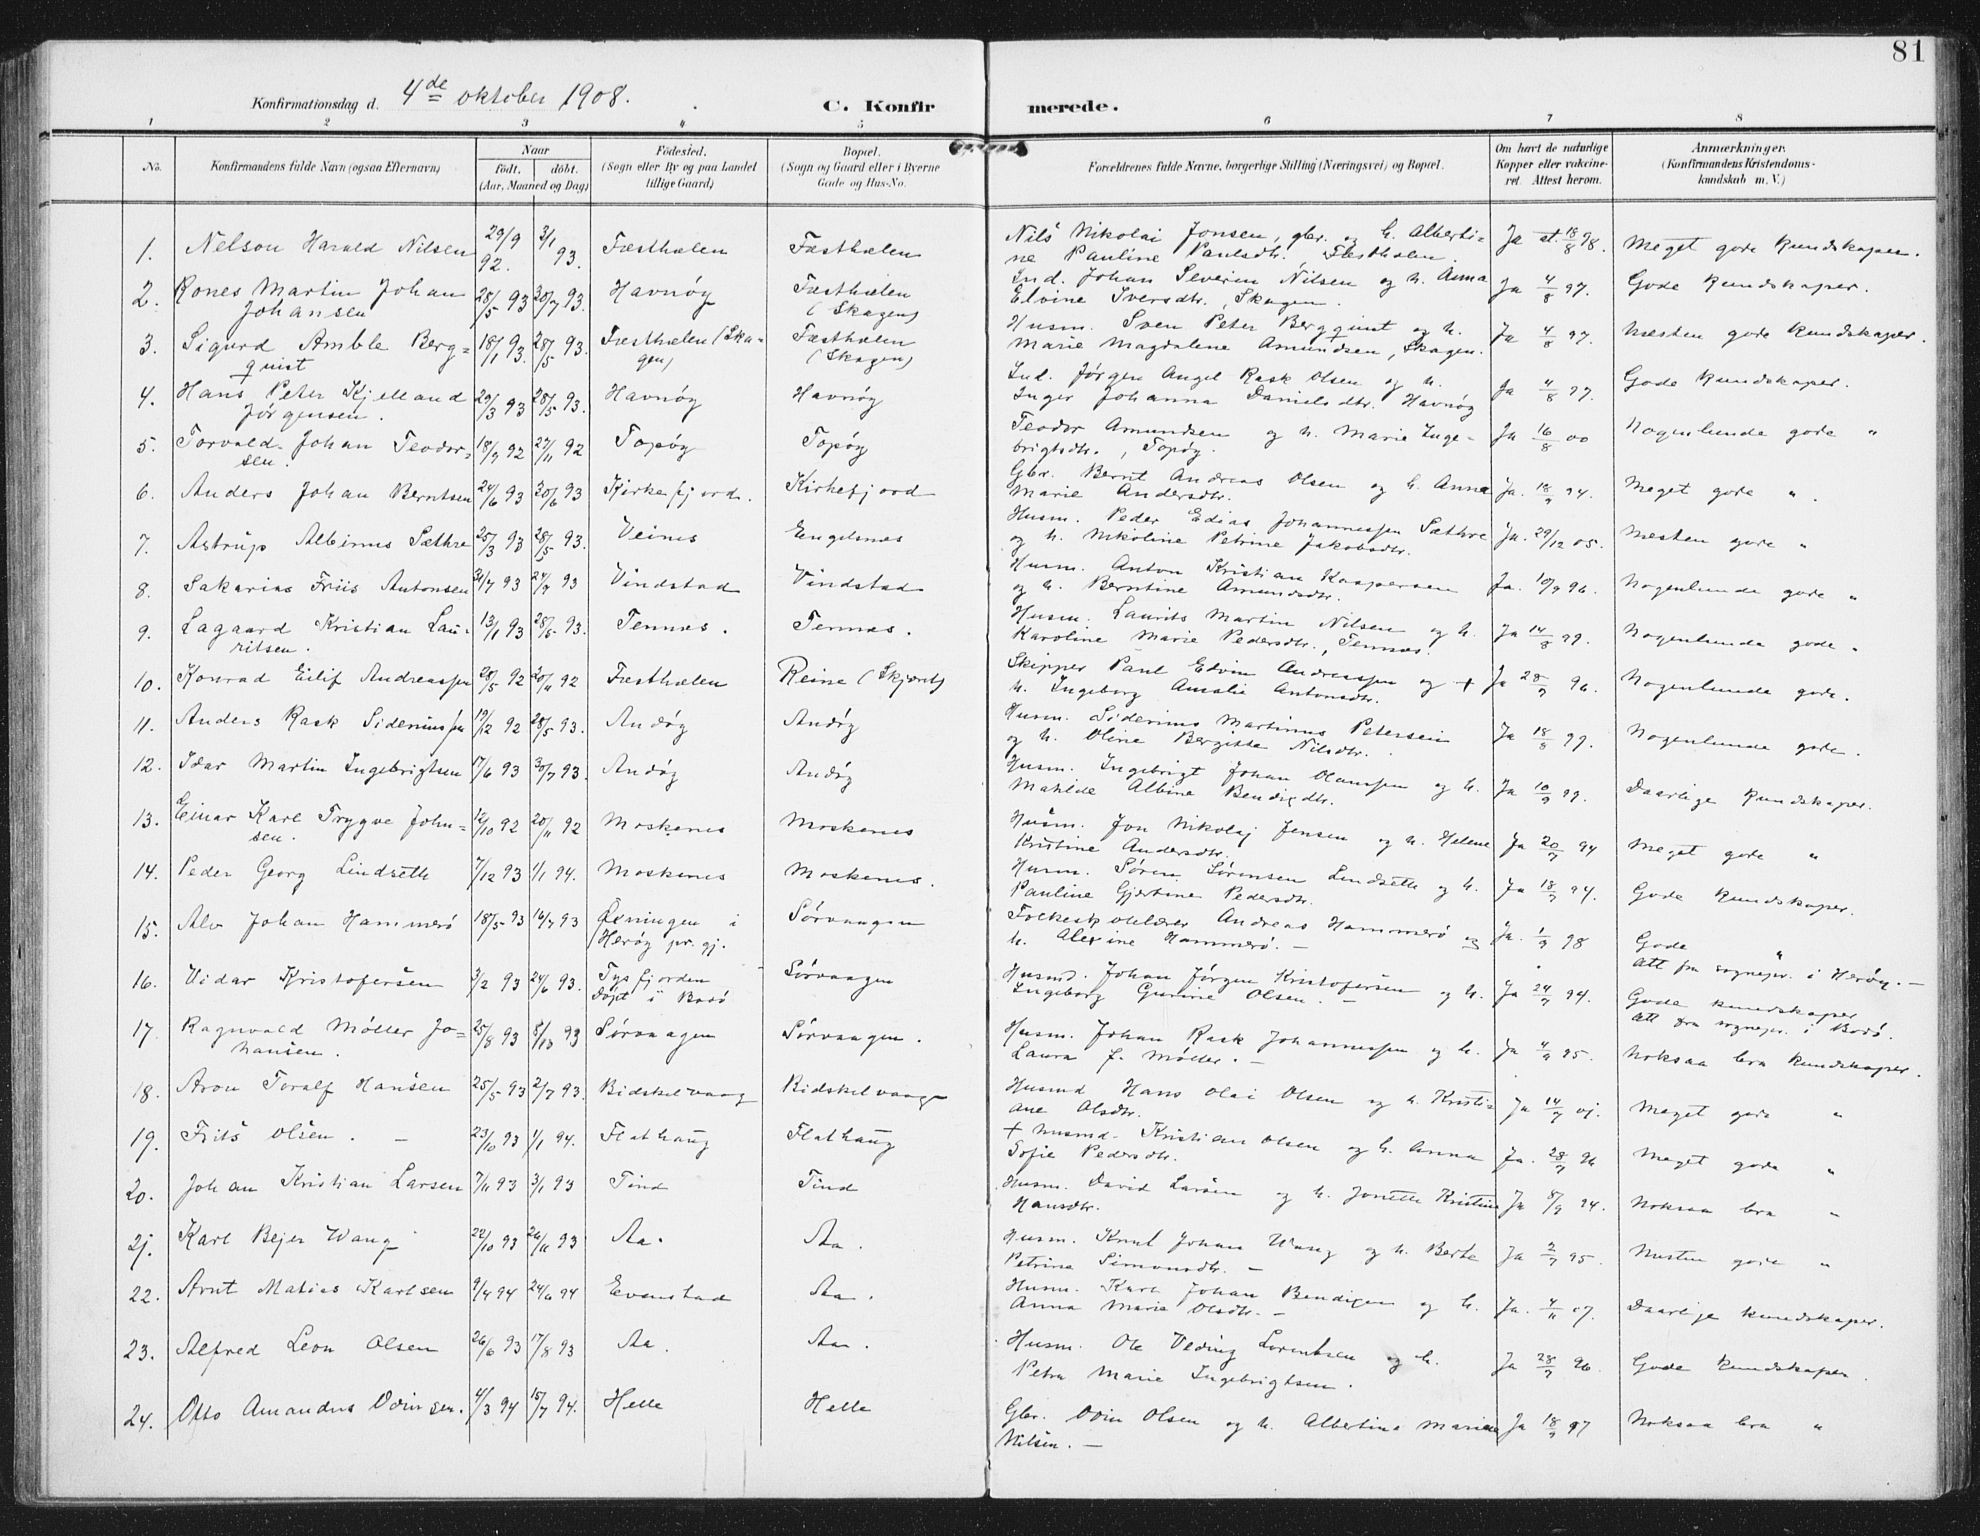 81
Konfirmationsdag d. 4de oktober 1908.
C. Konfirmerede.
1 2 3 4 5 6 7 8
No. Konfirmandens fulde Navn (ogsaa Efternavn) Naar født, døbt. (Aar, Maaned og Dag) Fødested. (Sogn eller By og paa Landet tillige Gaard) Bopæl. (Sogn og Gaard eller i Byerne Gade og Hus-No. Forældrenes fulde Navne, borgerlige Stilling (Næringsvei) og Bopæl. Om havt de naturlige Kopper eller vakcineret. Attest herom. Anmerkninger. (Konfirmandens Kristendomskundskab m. V.)
1. Nelson Harald Nilsen 29/9 92. 3/1 93. Fæsthælen Fæsthælen Nils Nikolai Jonsen, gbr. og h. Albertine Pauline Paulsdtr. Fæsthælen. Ja at. 18/8 98. Meget gode kundskaper.
2. Rones Martin Johan Johansen 28/5 93 30/7 93. Havnøy Fæsthælen (Skagen) Ind. Johan Severin Nilsen og h. Anna Elvine Iversdtr., Skagen. Ja 4/8 97. Gode kundskaper.
3. Sigurd Amble Bergquist 18/1 93. 28/5 93. Fæsthælen (Skagen) Fæsthælen (Skagen) Husm. Sven Peter Bergquist og h. Marie Magdalene Amundsen, Skagen. Ja 4/8 97. Næsten gode kundskaper.
4. Hans Peter Kjelland Jørgensen. 29/3 93 28/5 93. Havnøy Havnøy Ind. Jørgen Angel Rask Olsen og h. Inger Johanna Danielsdtr. Havnøy Ja 4/8 97. Gode kundskaper.
5. Torvald Johan Teodorsen. 18/9 92 27/11 92 Topøy Topøy Teodor Amundsen og h. Marie Ingebrigtsdtr., Topøy. Ja 16/8 00 Nogenlunde gode "
6. Anders Johan Berntsen 24/6 93 30/6 93 Kirkefjord. Kirkefjord Gbr. Bernt Andreas Olsen og h. Anna Marie Andersdtr. Ja. 18/9 94. Meget gode ".
7. Astrup Albinus Sæthre 25/3 93 28/5 93. Veines Engelsnes Husm. Peder Edias Johannessen Sæthre og h. Nikoline Petrine Jakobsdtr. Ja. 29/12 05. Næsten gode "
8. Sakarias Friis Antonsen 31/7 93 24/9 93 Vindstad Vindstad Husm. Anton Kristian Kaspersen og h. Berntine Amundsdtr. Ja. 10/9 96. Nogenlunde gode "
9. Lagaard Kristian Lauritsen. 13/1 93 28/5 93. Tennes. Tennes. Husm. Laurits Martin Nilsen og h. Karoline Marie Pedersdtr., Tennes. Ja 14/8 99. Nogenlunde gode "
10. Konrad Eilif Andreassen 28/5 92 20/11 92 Fæsthælen Reine (Skjæret) Skipper Paul Edvin Andreassen og + h. Ingeborg Amalie Antonsdtr. Ja 28/7 96. Nogenlunde gode.
11. Anders Rask Sideniussen 19/12 92 28/5 93. Andøy Andøy Husm. Siderinus Martinus Petersen og h. Oline Bergitte Nilsdtr. Ja 18/8 99. Nogenlunde gode.
12. Idar Martin Ingebrigtsen 17/6 93 30/7 93. Andøy Andøy Husm. Ingebrigt Johan Olaussen og h. Matilde Albine Bendigdtr. Ja 10/9 99. Daarlige kundskaper.
13. Einar Karl Trygve Johnsen. 12/10 92 20/11 92 Moskenes Moskenes Husm. Jon Nikolaj Jensen og h. Helene Kristine Andersdtr. Ja 20/7 94 Meget gode "
14. Peder Georg Lindseth 7/12 93 1/1 94. Moskenes Moskenes. Husm. Søren Sørensen Lindseth og h. Pauline Gjertine Pedersdtr. Ja 18/7 94. Gode kundskaper.
15. Alv Johan Hammerö 18/5 93 16/7 93 Øxningen i Herøy pr.gj. Sørvaagen Folkeskolelærer Andreas Hammerö og h. Alexine Hammerö. — Ja. 1/9 98 Gode " Att fra sognepr. i Herøy. —
16. Vidar Kristofersen 3/2 93 24/6 93. Tysfjorden Döpt i Bodö Sørvaagen Husmd. Johan Jørgen Kristofersen og h. Ingeborg Gurine Olsen. — Ja 24/7 94. Gode kundskaper Att fra sognepr. i Bodö.
17. Ragnvald Möller Johansen. 25/8 93 8/10 93 Sørvaagen Sørvaagen. Husm. Johan Rask Johannessen og h. Laura J. Möller. — Ja 4/9 95. Noksaa bra kundskaper.
18. Aron Toralf Hansen 25/5 93 2/7 93. Bidskelvaag Bidskelvaag Husmd Hans Olai Olsen og h. Kristiane Olsdtr. Ja 14/7 01. Meget gode "
19. Frits Olsen. — 23/10 93 1/1 94. Flathaug Flathaug + Husmd. Kristian Olsen og h. Anna Sofie Pedersdtr. Ja. 28/7 96 Meget gode "
20. Johan Kristian Larsen 7/11 93 3/1 93 Tind Tind Husm. David Larsen og h. Jonette Kristine Hansdtr. Ja 8/9 94. Noksaa bra "
21. Karl Bejer Wang 22/10 93 26/11 93 Aa. Aa. Husm. Knut Johan Wang og h. Berte Petrine Simonsdtr. — Ja 2/7 95. Næsten gode "
22. Arnt Matias Karlsen 9/4 94 24/6 94 Evenstad Aa. Husm. Karl Johan Bendigsen og h. Anna Marie Olsdtr. — Ja. 4/11 07. Daarlige kundskaper.
23. Alfred Leon Olsen 26/6 93 17/8 93 Aa. Aa. Husm. Ole Veding Lorentsen og h. Petra Marie Ingebrigtsen. Ja 28/7 96. Gode kundskaper.
24. Otto Amandus Odinsen. 4/3 94 15/7 94. Helle Helle Gbr. Odin Olsen og h. Albertine Mariane Nilsen. — Ja 18/9 97 Noksaa bra "